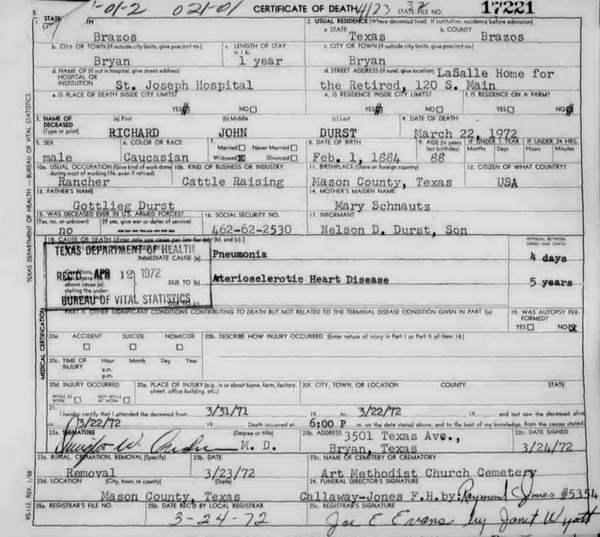 1-01-2 021-01 CERTIFICATE OF DEATH 4123 STATE FILE NO. 17221
STATE 2. USUAL RESIDENCE (Where deceased lived. If institution: residence before admission)
a. STATE b. COUNTY
Brazos Texas Brazos
b. CITY OR TOWN (If outside city limits, give precinct no.) c. LENGTH OF STAY in 1 b. c. CITY OR TOWN (If outside city limits, give precinct no.)
Bryan 1 year Bryan
d. NAME OF (If not in hospital, give street address) HOSPITAL OR INSTITUTION d. STREET ADDRESS (If rural, give location) LaSalle Home for
St. Joseph Hospital the Retired, 120 S. Main
e. IS PLACE OF DEATH INSIDE CITY LIMITS? e. IS RESIDENCE INSIDE CITY LIMITS? f. IS RESIDENCE ON A FARM?
YES NO YES NO YES NO
3. NAME OF DECEASED (Type or print) (a) First (b) Middle (c) Last 4. DATE OF DEATH
RICHARD JOHN DURST March 22, 1972
5. SEX 6. COLOR OR RACE 7. Married Never Married 8. DATE OF BIRTH 9. AGE (In years last birthday) IF UNDER 1 YEAR IF UNDER 24 HRS.
Months Days Hours Min.
male Caucasian Widowed Divorced Feb. 1, 1884 88
10a. USUAL OCCUPATION (Give kind of work done during most of working life, even if retired) 10b. KIND OF BUSINESS OR INDUSTRY 11. BIRTHPLACE (State or foreign country) 12. CITIZEN OF WHAT COUNTRY
Rancher Cattle Raising Mason County, Texas USA
13. FATHER'S NAME 14. MOTHER'S MAIDEN NAME
Gottlieg Durst Mary Schnautz
15. WAS DECEASED EVER IN U.S. ARMED FORCES? 16. SOCIAL SECURITY NO. 17. INFORMANT
(Yes, no, or unknown) (If yes, give war or dates of service)
no -------- 462-62-2530 Nelson D. Durst, Son
18. CAUSE OF DEATH [Enter only one cause per line for (a), (b), and (c).] INTERVAL BETWEEN ONSET AND DEATH
TEXAS DEPARTMENT OF HEALTH
IMMEDIATE CAUSE (a) Pneumonia 4 days
REC'D APR 12 1972
above cause (a) stating the under- DUE TO (b) Ateriosclerotic Heart Disease 5 years
BUREAU OF VITAL STATISTICS
DUE TO (c)
PART II. OTHER SIGNIFICANT CONDITIONS CONTRIBUTING TO DEATH BUT NOT RELATED TO THE TERMINAL DISEASE CONDITION GIVEN IN PART I(a) 19. WAS AUTOPSY PERFORMED?
YES NO
20a. ACCIDENT SUICIDE HOMICIDE 20b. DESCRIBE HOW INJURY OCCURRED. (Enter nature of injury in Part I or Part II of Item 18.)
20c. TIME OF INJURY Hour Month Day Year
a.m.
p.m.
20d. INJURY OCCURRED 20e. PLACE OF INJURY (e.g., in or about home, farm, factory, street, office building, etc.) 20f. CITY, TOWN, OR LOCATION COUNTY STATE
WHILE AT WORK NOT WHILE AT WORK
21. I hereby certify that I attended the deceased from 3/31/71 19 to 3/22/72 19 and last saw the deceased alive
on 3/22/72 19 Death occurred at 6:00 P m. on the date stated above, and to the best of my knowledge, from the causes stated
22a. SIGNATURE (Degree or title) 22b. ADDRESS 3501 Texas Ave., 22c. DATE SIGNED
M. D. Bryan, Texas 3/24/72
23a. BURIAL, CREMATION, REMOVAL (Specify) 23b. DATE 23c. NAME OF CEMETERY OR CREMATORY
Removal 3/23/72 Art Methodist Church Cemetery
23d. LOCATION (City, town, or county) (State) 24. FUNERAL DIRECTOR'S SIGNATURE
Mason County, Texas Callaway-Jones F.H. by: Raymond Jones #5354
25a. REGISTRAR'S FILE NO. 25b. DATE REC'D BY LOCAL REGISTRAR 25c. REGISTRAR'S SIGNATURE
3-24-72 Joe E. Evans by Janet Wyatt
TEXAS DEPARTMENT OF HEALTH — BUREAU OF VITAL STATISTICS
MEDICAL CERTIFICATION
VS-112, REV. 1/58